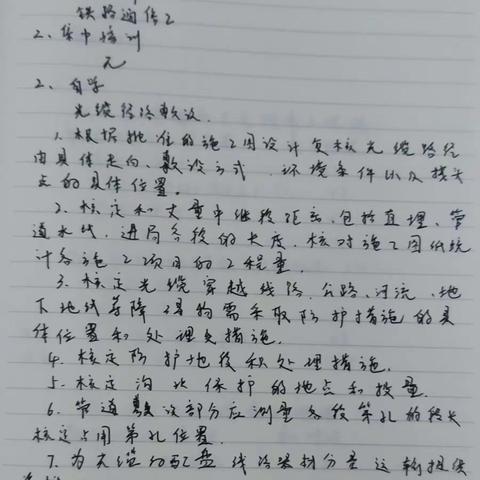 铁路通信工
2、集中培训
无
2、自学
光缆径路敷设.
1、根据批准的施工图设计复核光缆路径
由具体走向、敷设方式、环境条件以及接头
点的具体位置。
2、核定和丈量中继段距离、包括直埋、管
道水线、进局各段的长度、核对施工图纸统
计各施工项目的工程量.
3、核定光缆穿越线路、公路、河流、地
下地域等障碍物需采取防护措施的具
体位置和处理及措施.
4、核定防护地段和处理措施.
5、核定沟坎保护的地点和数量.
6、管道敷设部分应测量各段管孔的段长
核定占用管孔位置.
7、为光缆的配盘线路 分 运输提供